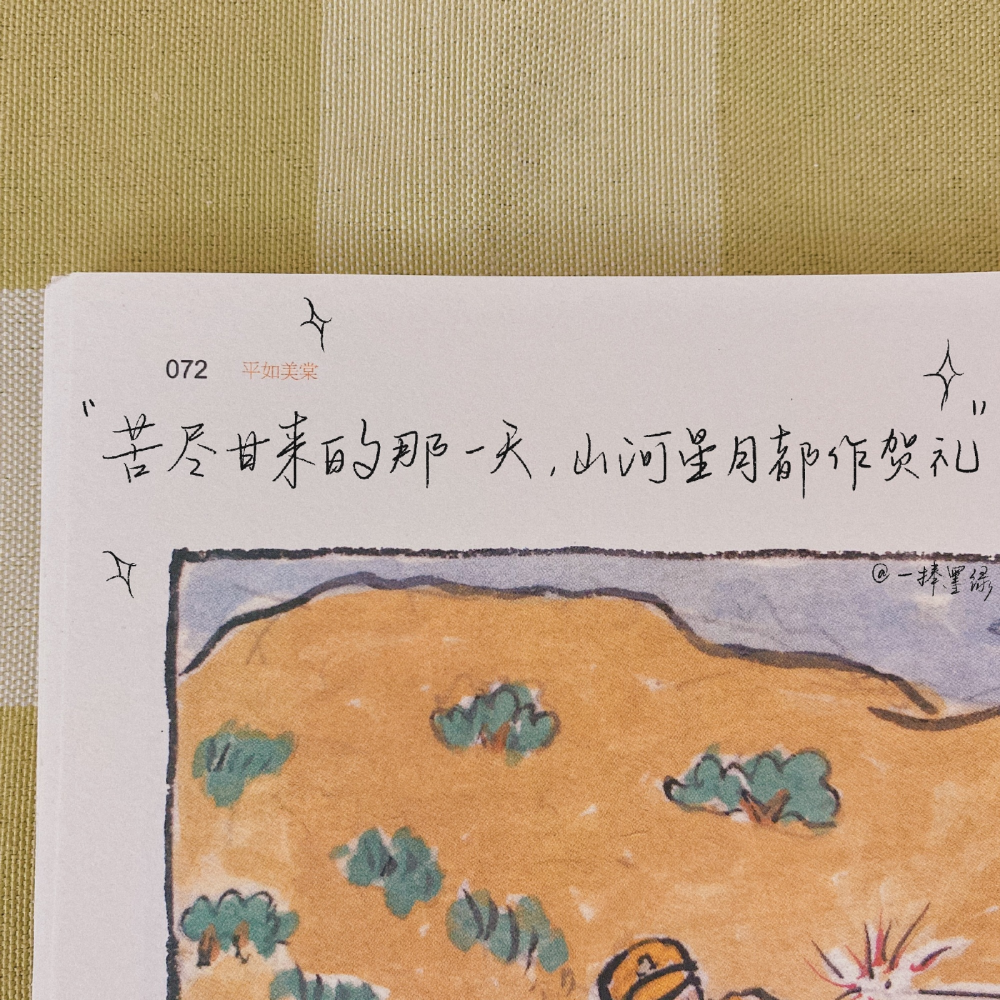 072 平如美棠
"苦尽甘来的那一天,山河星月都作贺礼"
@一捧墨绿